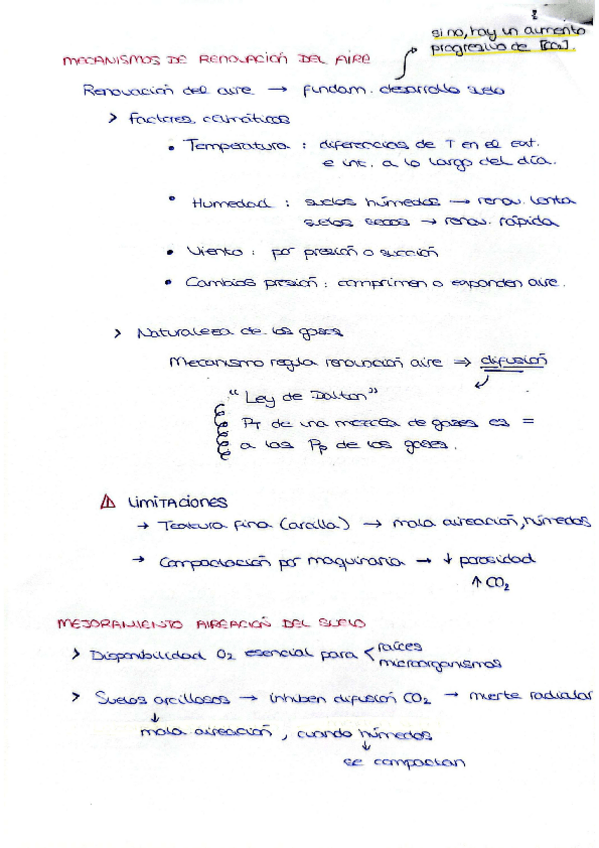 si no, hay un aumento
progresivo de [CO₂].
MECANISMOS DE RENOVACIÓN DEL AIRE
Renovación del aire → fundam. desarrollo suelo
> Factores climáticos
• Temperatura : diferencias de T en el ext.
e int. a lo largo del día.
• Humedad : suelos húmedos → renov. lenta
suelos secos → renov. rápida
• Viento : por presión o succión
• Cambios presión : comprimen o expanden aire.
> Naturaleza de los gases
Mecanismo regula renovación aire ⇒ difusión
"Ley de Dalton"
PT de una mezcla de gases es =
a las Pp de los gases.
⚠ LIMITACIONES
→ Textura fina (arcilla) → mala aireación, húmedos
→ Compactación por maquinaria → ↓ porosidad
↑ CO₂
MEJORAMIENTO AIREACIÓN DEL SUELO
> Disponibilidad O₂ esencial para < raíces
microorganismos
> Suelos arcillosos → inhiben difusión CO₂ → muerte radicular
↓
mala aireación, cuando húmedos
↓
se compactan